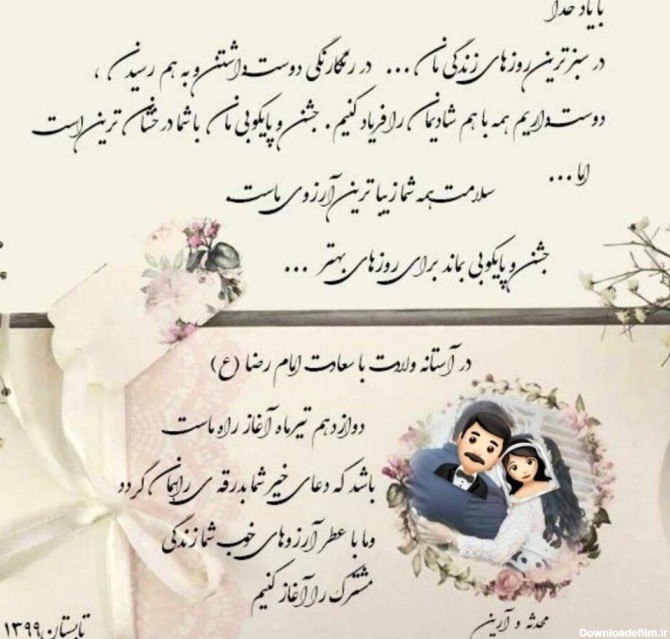 با یاد خدا
در سبزترین روزهای زندگی مان ... در رنگارنگی دوست داشتن و به هم رسیدن ،
دوست داریم همه با هم شادیمان را فریاد کنیم . جشن و پایکوبی مان با شما درخشان ترین است
اما ...
سلامت همه شما زیبا ترین آرزوی ماست
جشن و پایکوبی بماند برای روزهای بهتر ...
در آستانه ولادت با سعادت امام رضا (ع)
دوازدهم تیرماه آغاز راه ماست
باشد که دعای خیر شما بدرقه ی راهمان گردد
و ما با عطر آرزوهای خوب شما زندگی
مشترک را آغاز کنیم
محدثه و آرین
تابستان ۱۳۹۹
Downloadefilm.ir